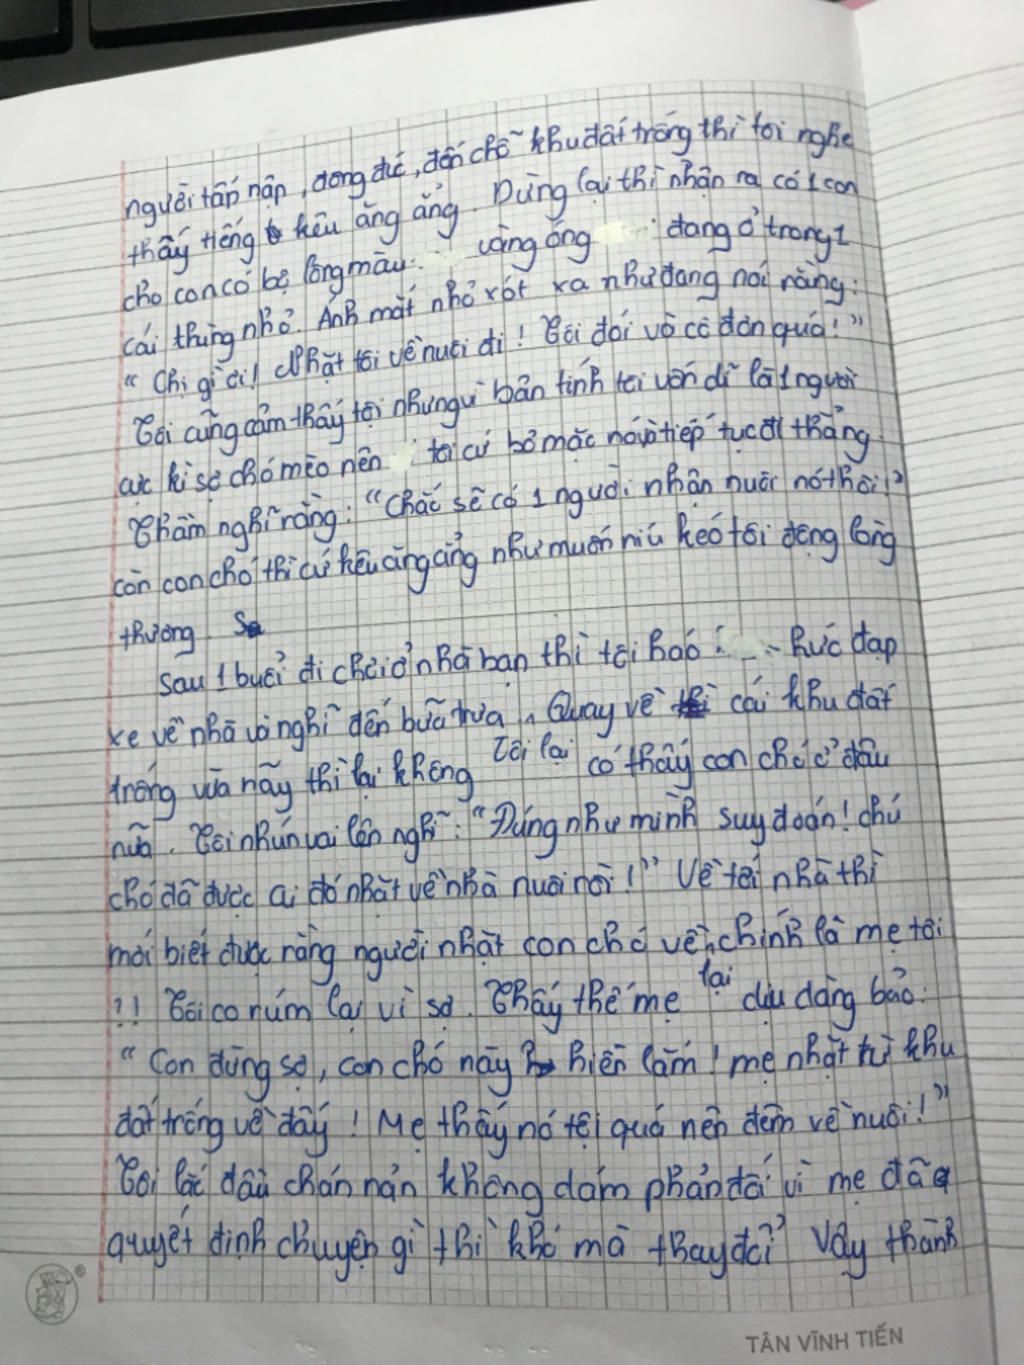 người tấp nập, đông đúc, đến chỗ khu đất trống thì tôi nghe
thấy tiếng kêu ăng ẳng. Dừng lại thì nhận ra có 1 con
chó con có bộ lông màu vàng óng đang ở trong 1
cái thùng nhỏ. Ánh mắt nhỏ xót xa như đang nói rằng:
“ Chị gì ơi! Nhặt tôi về nuôi đi! Tôi đói và cô đơn quá!”
Tôi cũng cảm thấy tội nhưng vì bản tính tôi vốn dĩ là 1 người
cực kì sợ chó mèo nên tôi cứ bỏ mặc nó và tiếp tục đi thẳng
Thầm nghĩ rằng: “Chắc sẽ có 1 người nhận nuôi nó thôi!”
còn con chó thì cứ kêu ăng ẳng như muốn níu kéo tôi động lòng
thương.
Sau 1 buổi đi chơi ở nhà bạn thì tôi háo hức đạp
xe về nhà và nghĩ đến bữa trưa. Quay về cái khu đất
trống vừa nãy thì lại không có thấy con chó ở đâu
Tôi lại
nữa. Tôi nhún vai lên nghĩ: “Đúng như mình suy đoán! chú
chó đã được ai đó nhặt về nhà nuôi rồi!” Về tới nhà thì
mới biết được rằng người nhặt con chó về, chính là mẹ tôi
?!! Tôi co rúm lại vì sợ. Thấy thế mẹ lại dịu dàng bảo:
“ Con đừng sợ, con chó này hiền lắm! mẹ nhặt từ khu
đất trống về đấy! Mẹ thấy nó tội quá nên đem về nuôi!”
Tôi lắc đầu chán nản không dám phản đối vì mẹ đã
quyết định chuyện gì thì khó mà thay đổi Vậy thành
TÂN VĨNH TIẾN